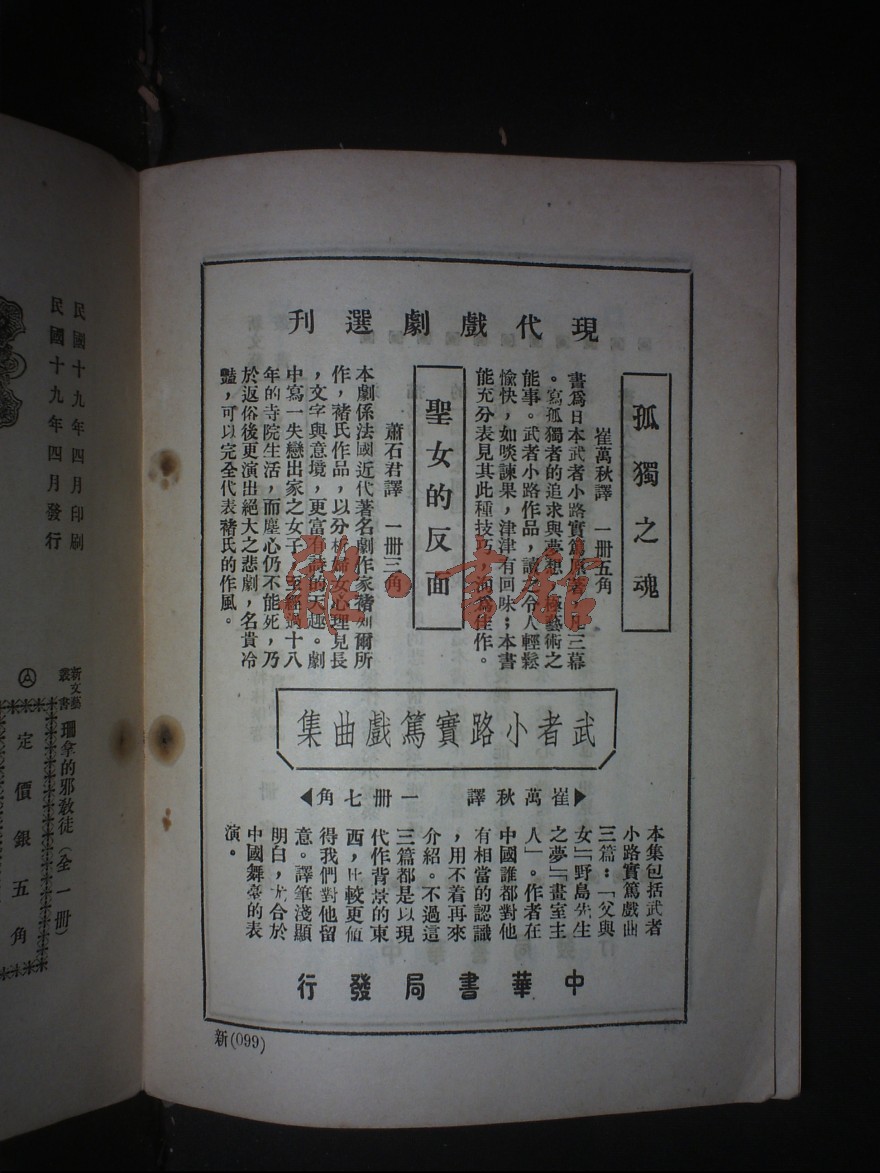 現代戲劇選刊
孤獨之魂
崔萬秋譯　一冊五角
書爲日本武者小路實篤原著，凡三幕
。寫孤獨者的追求與夢想，極藝術之
能事。武者小路作品，讀之令人輕鬆
愉快，如啖諫果，津津有回味；本書
能充分表見其此種技巧，洵爲佳作。
聖女的反面
蕭石君譯　一冊三角
本劇係法國近代著名劇作家褚列爾所
作，褚氏作品，以分析婦女心理見長
，文字與意境，更富有詩的天趣。劇
中寫一失戀出家之女子，至經過十八
年的寺院生活，而塵心仍不能死，乃
於返俗後更演出絕大之悲劇，名貴冷
豔，可以完全代表褚氏的作風。
武者小路實篤戲曲集
崔萬秋譯　一冊七角
本集包括武者
小路實篤戲曲
三篇：「父與
女」「野島先生
之夢」「畫室主
人」。作者在
中國誰都對他
有相當的認識
，用不着再來
介紹。不過這
三篇都是以現
代作背景的東
西，比較更値
得我們對他留
意。譯筆淺顯
明白，尤合於
中國舞臺的表
演。
中華書局發行
新(099)
民國十九年四月印刷
民國十九年四月發行
新文藝
叢書
珊拿的邪敎徒（全一冊）
Ⓐ
定價銀五角
雒·書館